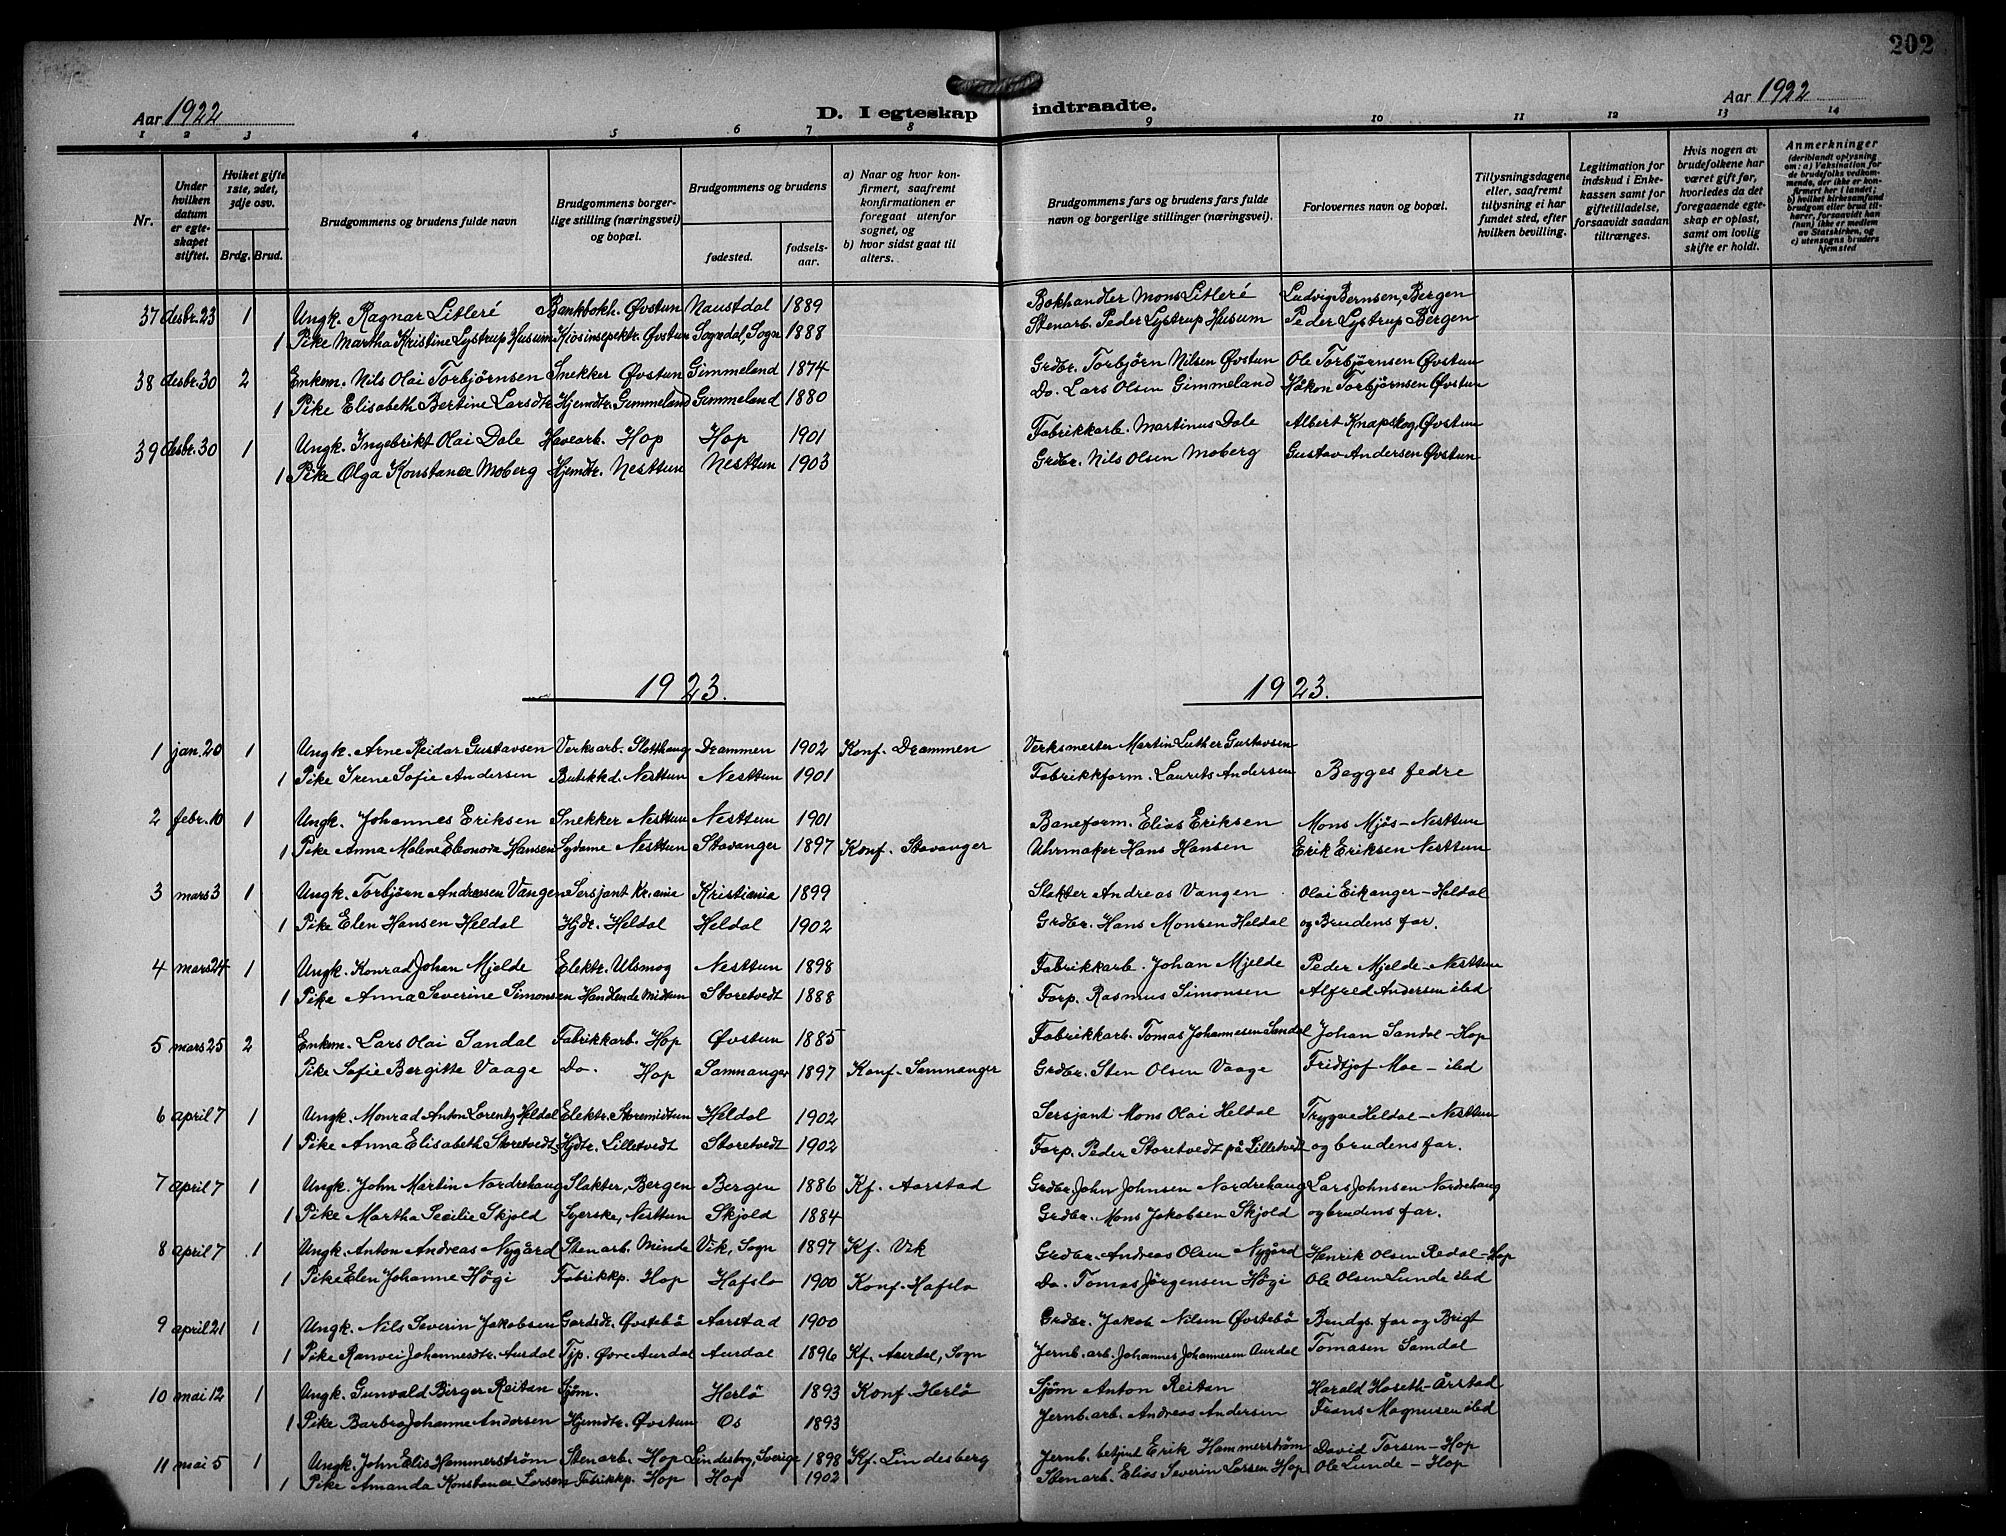 202
Aar 1922
D. I egteskap indtraadte.
Aar 1922
1 2 3 4 5 6 7 8 9 10 11 12 13 14
Nr.
Under hvilken datum er egteskapet stiftet.
Hviket gifte 1ste, 2det, 3dje osv.
Brdg. Brud.
Brudgommens og brudens fulde navn
Brudgommens og brudens borgerlige stilling (næringsvei) og bopæl.
Brudgommens og brudens
fødested.
fødselsaar.
a) Naar og hvor konfirmert, saafremt konfirmationen er foregaat utenfor sognet, og
b) hvor sidst gaat til alters.
Brudgommens fars og brudens fars fulde navn og borgerlige stillinger (næringsvei).
Forlovernes navn og bopæl.
Tillysningsdagene eller, saafremt tillysning ei har fundet sted, efter hvilken bevilling.
Legitimation for indskud i Enkekassen samt for giftetilladelse, forsaavidt saadan tiltrænges.
Hvis nogen av brudefolkene har været gift før, hvorledes da det foregaaende egteskap er opløst, samt om lovlig skifte er holdt.
Anmerkninger (deriblandt oplysning om: a) Vaksination for de brudefolks vedkommende, der ikke er konfirmert her i landet; b) hvilket kirkesamfund brudgom eller brud tilhører, forsaavidt han (hun) ikke er medlem av Statskirken, og c) utensogns bruders hjemsted
37 desbr. 23 1 Ungk. Ragnar Litleré Bankbokh. Øvstun Naustdal 1889 Bokhandler Mons Litleré Ludvig Bernsen, Bergen
1 Pike Martha Kristine Lystrup Husum Kiosinspektr. Øvstun Sogndal, Sogn 1888 Stenarb. Peder Lystrup Husum Peder Lystrup Bergen
38 desbr. 30 2 Enkem. Nils Olai Torbjørnsen Snekker Øvstun Gimmeland 1874 Grdbr. Torbjørn Nilsen Øvstun Ole Torbjørnsen Øvstun
1 Pike Elisabeth Bertine Larsdtr. Hjemdtr. Gimmeland Gimmeland 1880 Do. Lars Olsen Gimmeland Håkon Torbjørnsen Øvstun
39 desbr. 30 1 Ungk. Ingebrikt Olai Dale Havearb. Hop Hop 1901 Fabrikkarb. Martinus Dale Albert Knapskog, Øvstun
1 Pike Olga Konstance Moberg Hjemdtr. Nesttun Nesttun 1903 Grdbr. Nils Olsen Moberg Gustav Andersen Øvstun
1923. 1923.
1 jan. 20 1 Ungk. Arne Reidar Gustavsen Verksarb. Slotthaug Drammen 1902 Konf. Drammen Verksmester Martin Luther Gustavsen
1 Pike Irene Sofie Andersen Butikkd. Nesttun Nesttun 1901 Fabrikkform. Laurits Andersen Begges fedre
2 febr. 10 1 Ungk. Johannes Eriksen Snekker Nesttun Nesttun 1901 Baneform. Elias Eriksen Mons Mjøs - Nesttun
1 Pike Anna Malene Eleonora Hansen Sydame Nesttun Stavanger 1897 Konf. Stavanger Uhrmaker Hans Hansen Erik Eriksen Nesttun
3 mars 3 1 Ungk. Torbjørn Andreasen Vangen Sersjant Kr.ania Kristiania 1899 Slakter Andreas Vangen Olai Eikanger - Heldal
1 Pike Elen Hansen Heldal Hjdt. Heldal Heldal 1902 Grdbr. Hans Monsen Heldal og Brudens far.
4 mars 24 1 Ungk. Konrad Johan Mjelde Elektr. Ulsmog Nesttun 1898 Fabrikkarb. Johan Mjelde Peder Mjelde - Nesttun
1 Pike Anna Severine Simonsen Handlende Midtun Storetvedt 1888 Forp. Rasmus Simonsen Alfred Andersen ibd
5 mars 25 2 Enkem. Lars Olai Sandal Fabrikkarb. Hop Øvstun 1885 Fabrikkarb. Tomas Johannesen Sandal Johan Sandal - Hop
Pike Sofie Bergitte Vaage Do. Hop Samnanger 1897 Konf. Samnanger Grdbr. Sten Olsen Vaage Fridtjof Moe - ibd
6 april 7 1 Ungk. Monrad Anton Lorentz Heldal Elektr. Storemidtun Heldal 1902 Sersjant Mons Olai Heldal Trygve Heldal - Nesttun
1 Pike Anna Elisabeth Storetvedt Hjdtr. Lilletvedt Storetvedt 1902 Forp. Peder Storetvedt på Lilletvedt og brudens far.
7 april 7 1 Ungk. John Martin Nordrehaug Slakter, Bergen Bergen 1886 Kf. Aarstad Grdbr. John Johnsen Nordrehaug Lars Johnsen Nordrehaug
1 Pike Martha Secilie Skjold Syerske, Nesttun Skjold 1884 Grdbr. Mons Jakobsen Skjold og brudens far.
8 april 7 1 Ungk. Anton Andreas Nygård Stenarb. Minde Vik, Sogn 1897 Kf. Vik Grdbr. Andreas Olsen Nygård Henrik Olsen Redal - Hop
1 Pike Elen Johanne Høgi Fabrikkp. Hop Hafslo 1900 Konf. Hafslo Do. Tomas Jørgensen Høgi Ole Olsen Lunde ibd
9 april 21 1 Ungk. Nils Severin Jakobsen Gardsdr. Øvstebø Aarstad 1900 Grdbr. Jakob Nilsen Øvstebø Brudgs. far og Brigt
1 Pike Ranvei Johannesdtr. Aurdal Tjp. Øvre Aurdal Aurdal 1896 Kf. Aurdal, Sogn Jernb. arb. Johannes Johannesen Aurdal Tomasen Samdal
10 mai 12 1 Ungk. Gunvald Birger Reitan Sjøm. Herlø 1893 Konf. Herlø Sjøm Anton Reitan Harald Hoseth - Årstad
1 Pike Barbra Johanne Andersen Hjemdtr. Øvstun Os 1893 Jernb. arb. Andreas Andersen Frans Magnusen ibd
11 mai 5 1 Ungk. John Elis Hammerstrøm Stenarb. Hop Lindesbrg, Sverige 1898 Kf. Lindesberg Jernb. betjnt Erik Hammerstrøm David Torsen - Hop
1 Pike Amanda Konstance Larsen Fabrikkp. Hop Hop 1902 Stenarb. Elias Severin Larsen Hop Ole Lunde - Hop